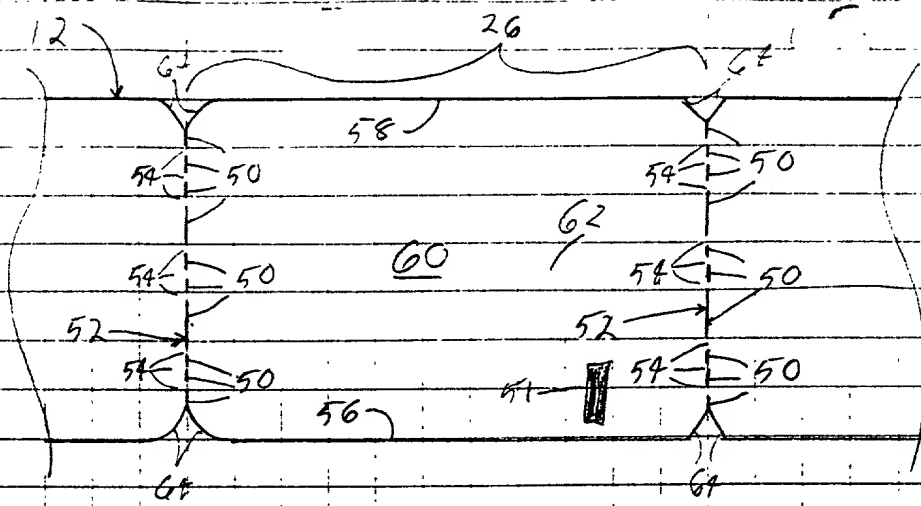 12 26
64 64
58
54 50 54 50
62
60
54 50 54 50
52 52
54 50 54 50
51
56
64 64